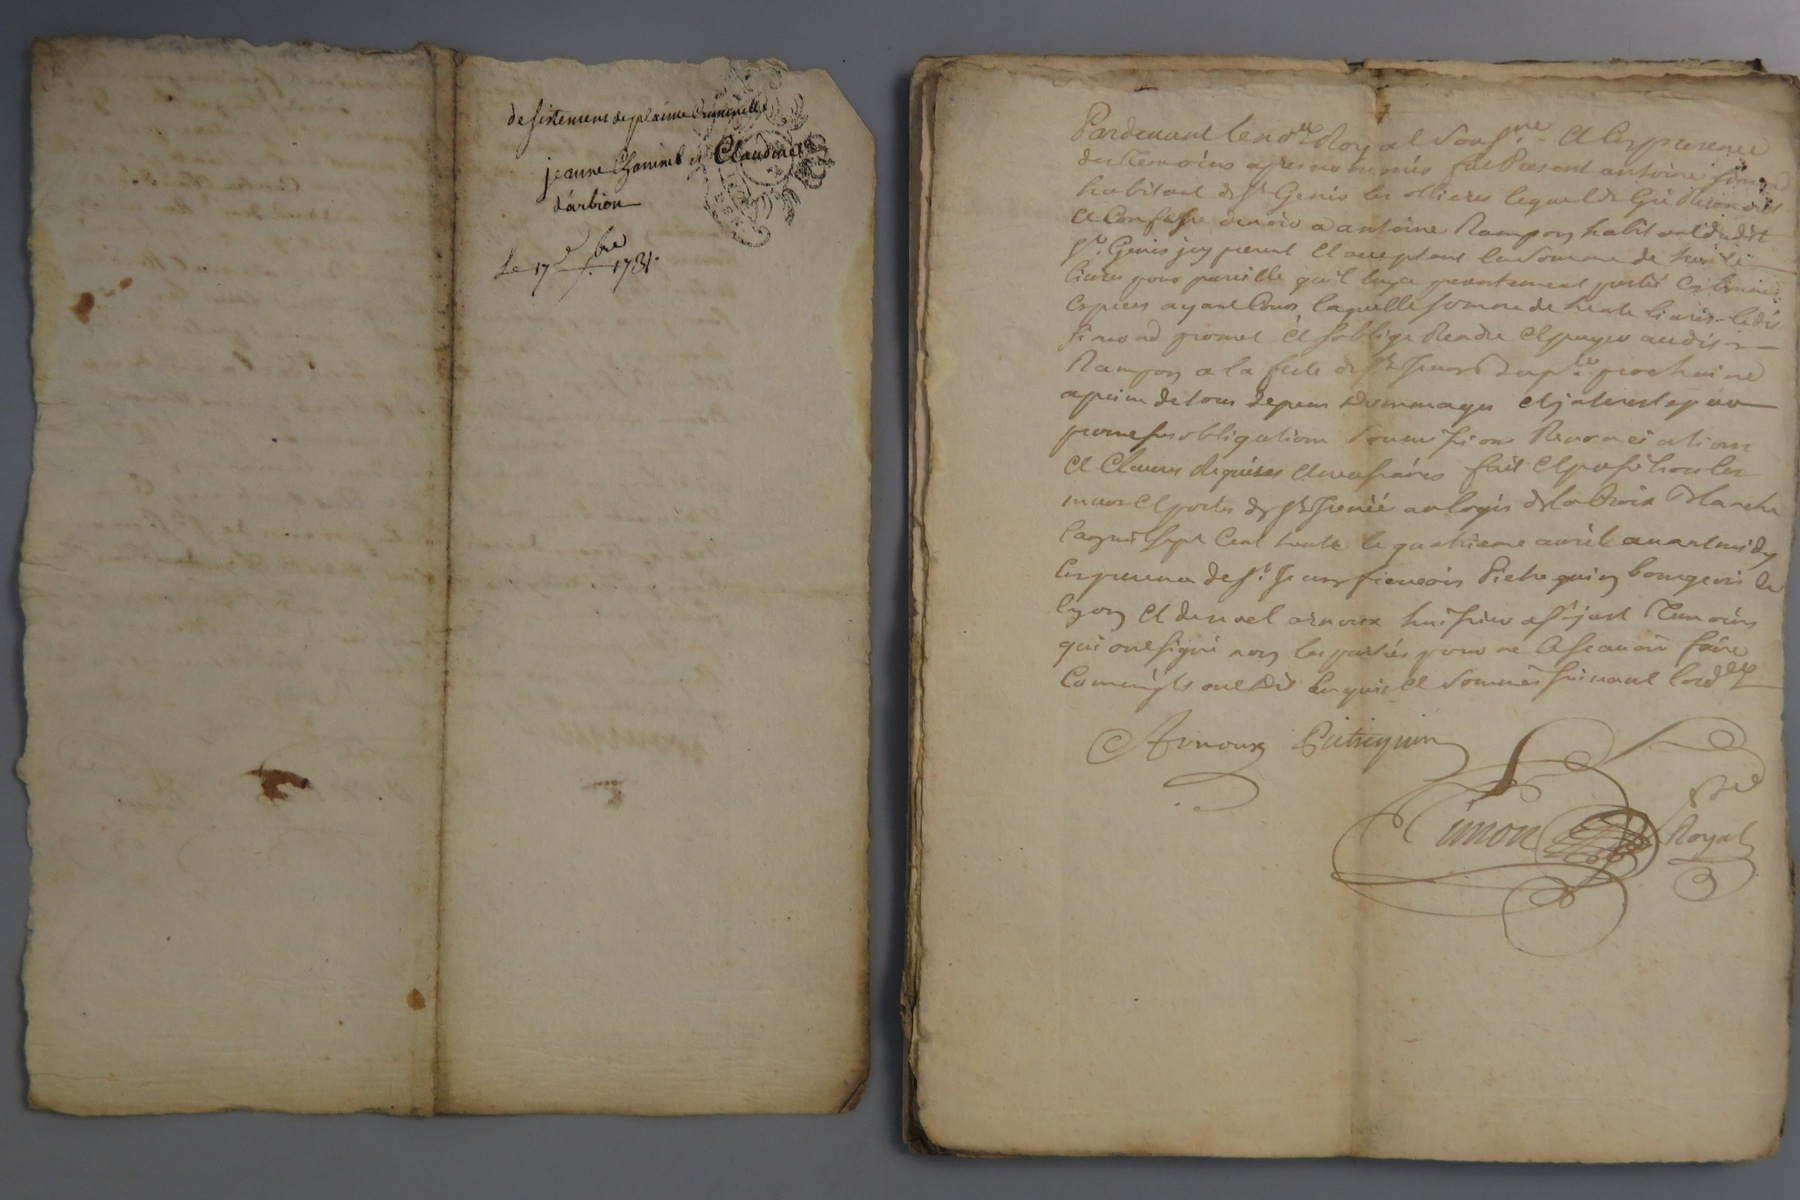 desistement de plainte Criminelle
jeanne Chamb et Claudine
darbion
Le 17e 7bre 1731.
Pardevant le no.re Royal sousf.ne Et En presence
des temoins apres nommés fut Present antoine simond
habitant de st Genis les ollieres lequel de Gré Reconoit
et Confesse devoir a antoine Rampon habitant dudit
st. Genis jcy present Et acceptant la somme de trente
livres pour pareille qu'il luy a presentement presté En bonnes
Especes ayant Cours laquelle somme de trente livres ledit
simond promet Et soblige Rendre Et payer audit
Rampon a la feste de st Jean prochaine
a peine de tous depens dommages et jnterest
obligations soumissions Renonciations
et Clauses Requises Et necessaires fait Et passé hors les
murs Et portes de st Jrenée au logis de la Croix Blanche
Lan mil sept Cent trente le quatrieme avril avant midy
En presence de sr. Jean francois Pietrequin bourgeois de
lyon Et de noel arnoux huissier a st just Temoins
qui ont signé non les parties pour ne le scavoir faire
Comme jls ont dit Enquis et sommés suivant lord.ce
Arnoux Pietrequin
Simon
n.re
Royal